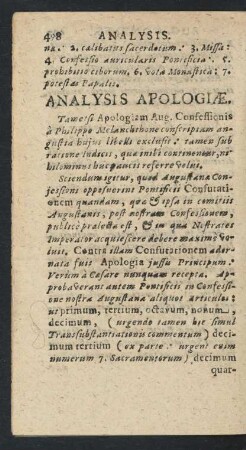 498 ANALYSIS.
na. 2. calibatus sacerdotum. 3. Missa:
4. Confessio auricularis Pontificia: 5.
prohibitio ciborum, 6. vota Monastica: 7.
potestas Papalis.
ANALYSIS APOLOGIÆ.
Tametsi Apologiam Aug. Confessionis
à Philippo Melanchthone conscriptam an-
gusta hujus libelli exclusit: tamen sub
ratione Iudicii, quæ mihi continentur, ni-
hilominus huc pancis referre velut.
Sciendum igitur, quod Augustana Con-
fessioni opposuerint Pontificii Confutati-
onem quandam, quæ & ipsa in comitiis
Augustanis, post nostram Confessionem,
publicè prælecta est, & in qua Nostrates
Imperator acquiescere debere maximè vo-
luit. Contra illam Confutationem ador-
nata fuit Apologia jussu Principum.
Verùm à Cæsare nunquam recepta. Ap-
probaverant autem Pontificii in Confessi-
one nostra Augustana aliquos articulos:
ut primum, tertium, octavum, nonum,
decimum, (urgendo tamen hic simul
Transsubstantiationis commentum) deci-
mum tertium (ex parte: urgent enim
numerum 7. Sacramentorum) decimum
quar-